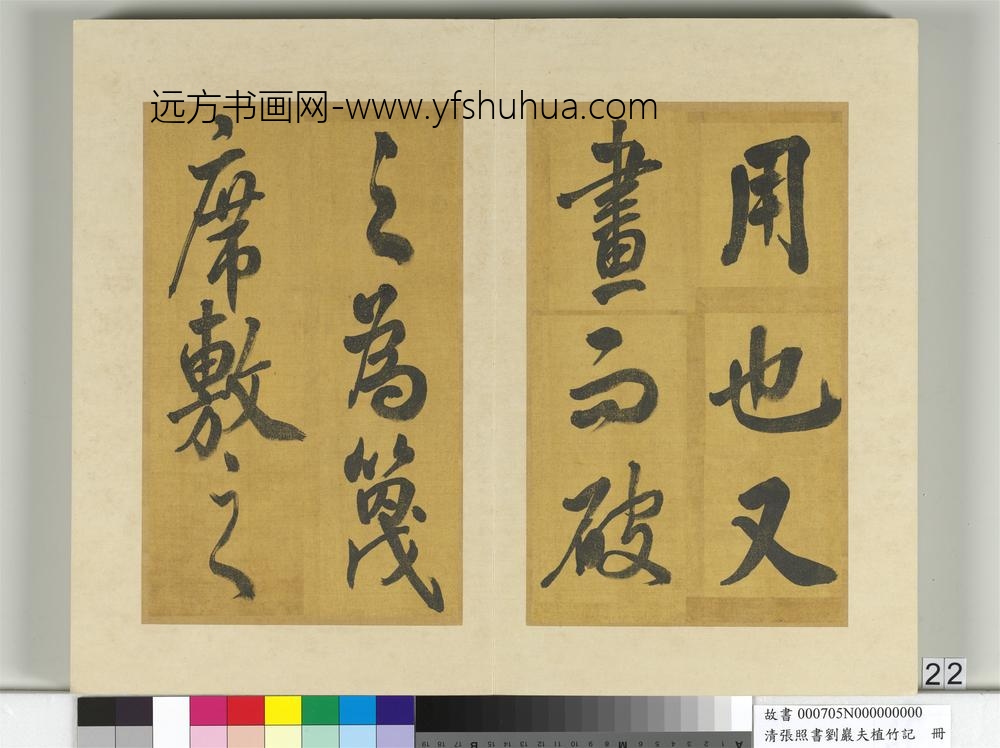 远方书画网-www.yfshuhua.com
用也又
畫而破
之為篾
席敷之
22
故書 000705N000000000
清張照書劉巖夫植竹記 冊